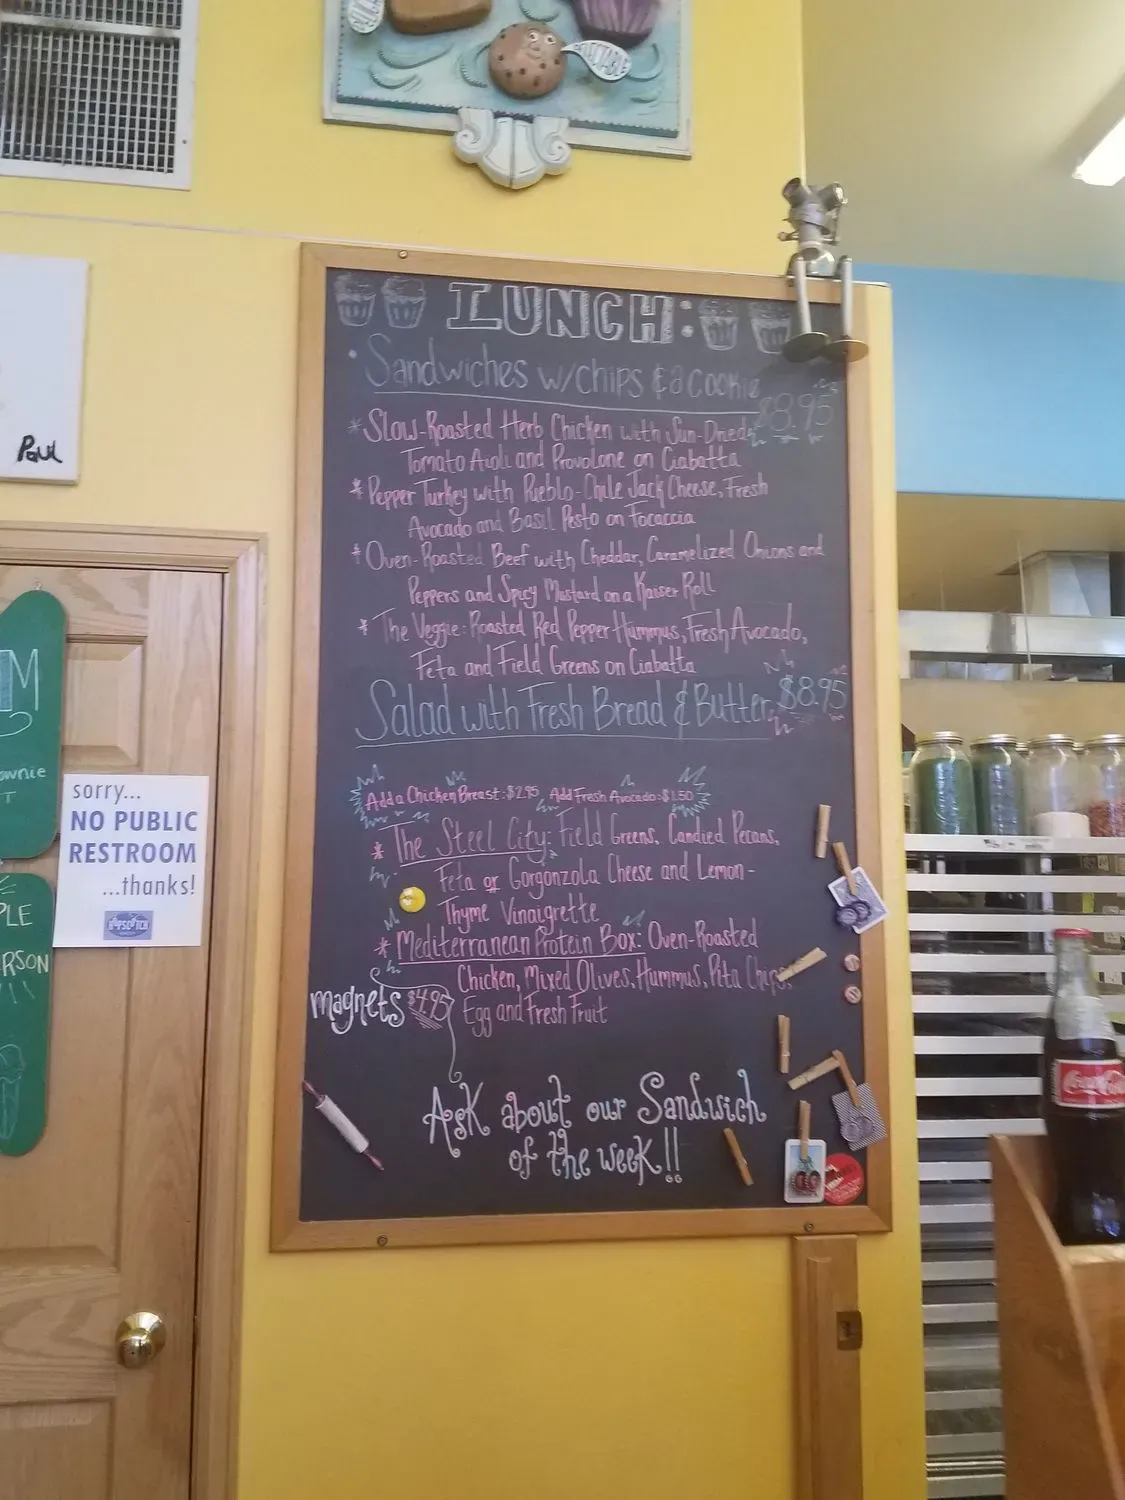 DELECTABLE
LUNCH:
Sandwiches w/chips & a cookie $8.95
* Slow-Roasted Herb Chicken with Sun-Dried
Tomato Aioli and Provolone on Ciabatta
* Pepper Turkey with Pueblo-Chile Jack Cheese, Fresh
Avocado and Basil Pesto on Focaccia
* Oven-Roasted Beef with Cheddar, Caramelized Onions and
Peppers and Spicy Mustard on a Kaiser Roll
* The Veggie: Roasted Red Pepper Hummus, Fresh Avocado,
Feta and Field Greens on Ciabatta
Salad with Fresh Bread & Butter $8.95
Add a Chicken Breast: $2.95 Add Fresh Avocado: $1.50
* The Steel City: Field Greens, Candied Pecans,
Feta or Gorgonzola Cheese and Lemon-
Thyme Vinaigrette
* Mediterranean Protein Box: Oven-Roasted
Chicken, Mixed Olives, Hummus, Pita Chips,
Egg and Fresh Fruit
magnets $4.95
Ask about our Sandwich
of the week!!
Paul
M
ownie
T
sorry...
NO PUBLIC
RESTROOM
...thanks!
HOPSCOTCH
PLE
ERSON
Coca-Cola